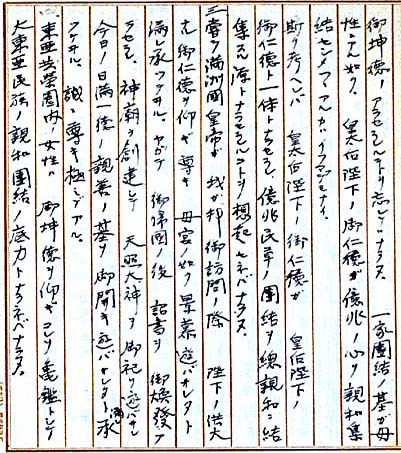 御坤徳ノアラセラルヽヲ忘レテハナラヌ。一家團結ノ基ガ母
性ニアル如ク、皇太后陛下ノ御仁徳ガ億兆ノ心ヲ親和集
結セシメ
断ク考ヘレバ 皇太后陛下ノ御仁徳ガ 皇后陛下ノ
御仁徳ト一体トナラセラレ、億兆民草ノ團結ヲ總親和ニ結
集スル源トナラセラルヽコトヲ想起セネバナラヌ。
三、嘗ツ満洲國皇帝ガ 我ガ邦御訪問ノ際 陛下ノ供大
ナル御仁徳ヲ仰ギ尊キ母宮ノ如ク景慕遊バサレタト
漏レ承ツテヰル。ヤガテ御帰國ノ後 詔書ヲ御煥發ア
ラセラレ、神廟ヲ創建シテ 天照大神ヲ御祀リ遊バサレ
今日ノ日満一徳ノ親善ノ基ヲ御開キ遊バサレタト漏レ承
ツテヰル。誠ニ尊キ極ミデアル。
東亜共榮圏内ノ女性ハ 御坤徳ヲ仰ギコレヲ亀鑑トシテ
大東亜民族ノ親和團結ノ底力トナラネバナラヌ。